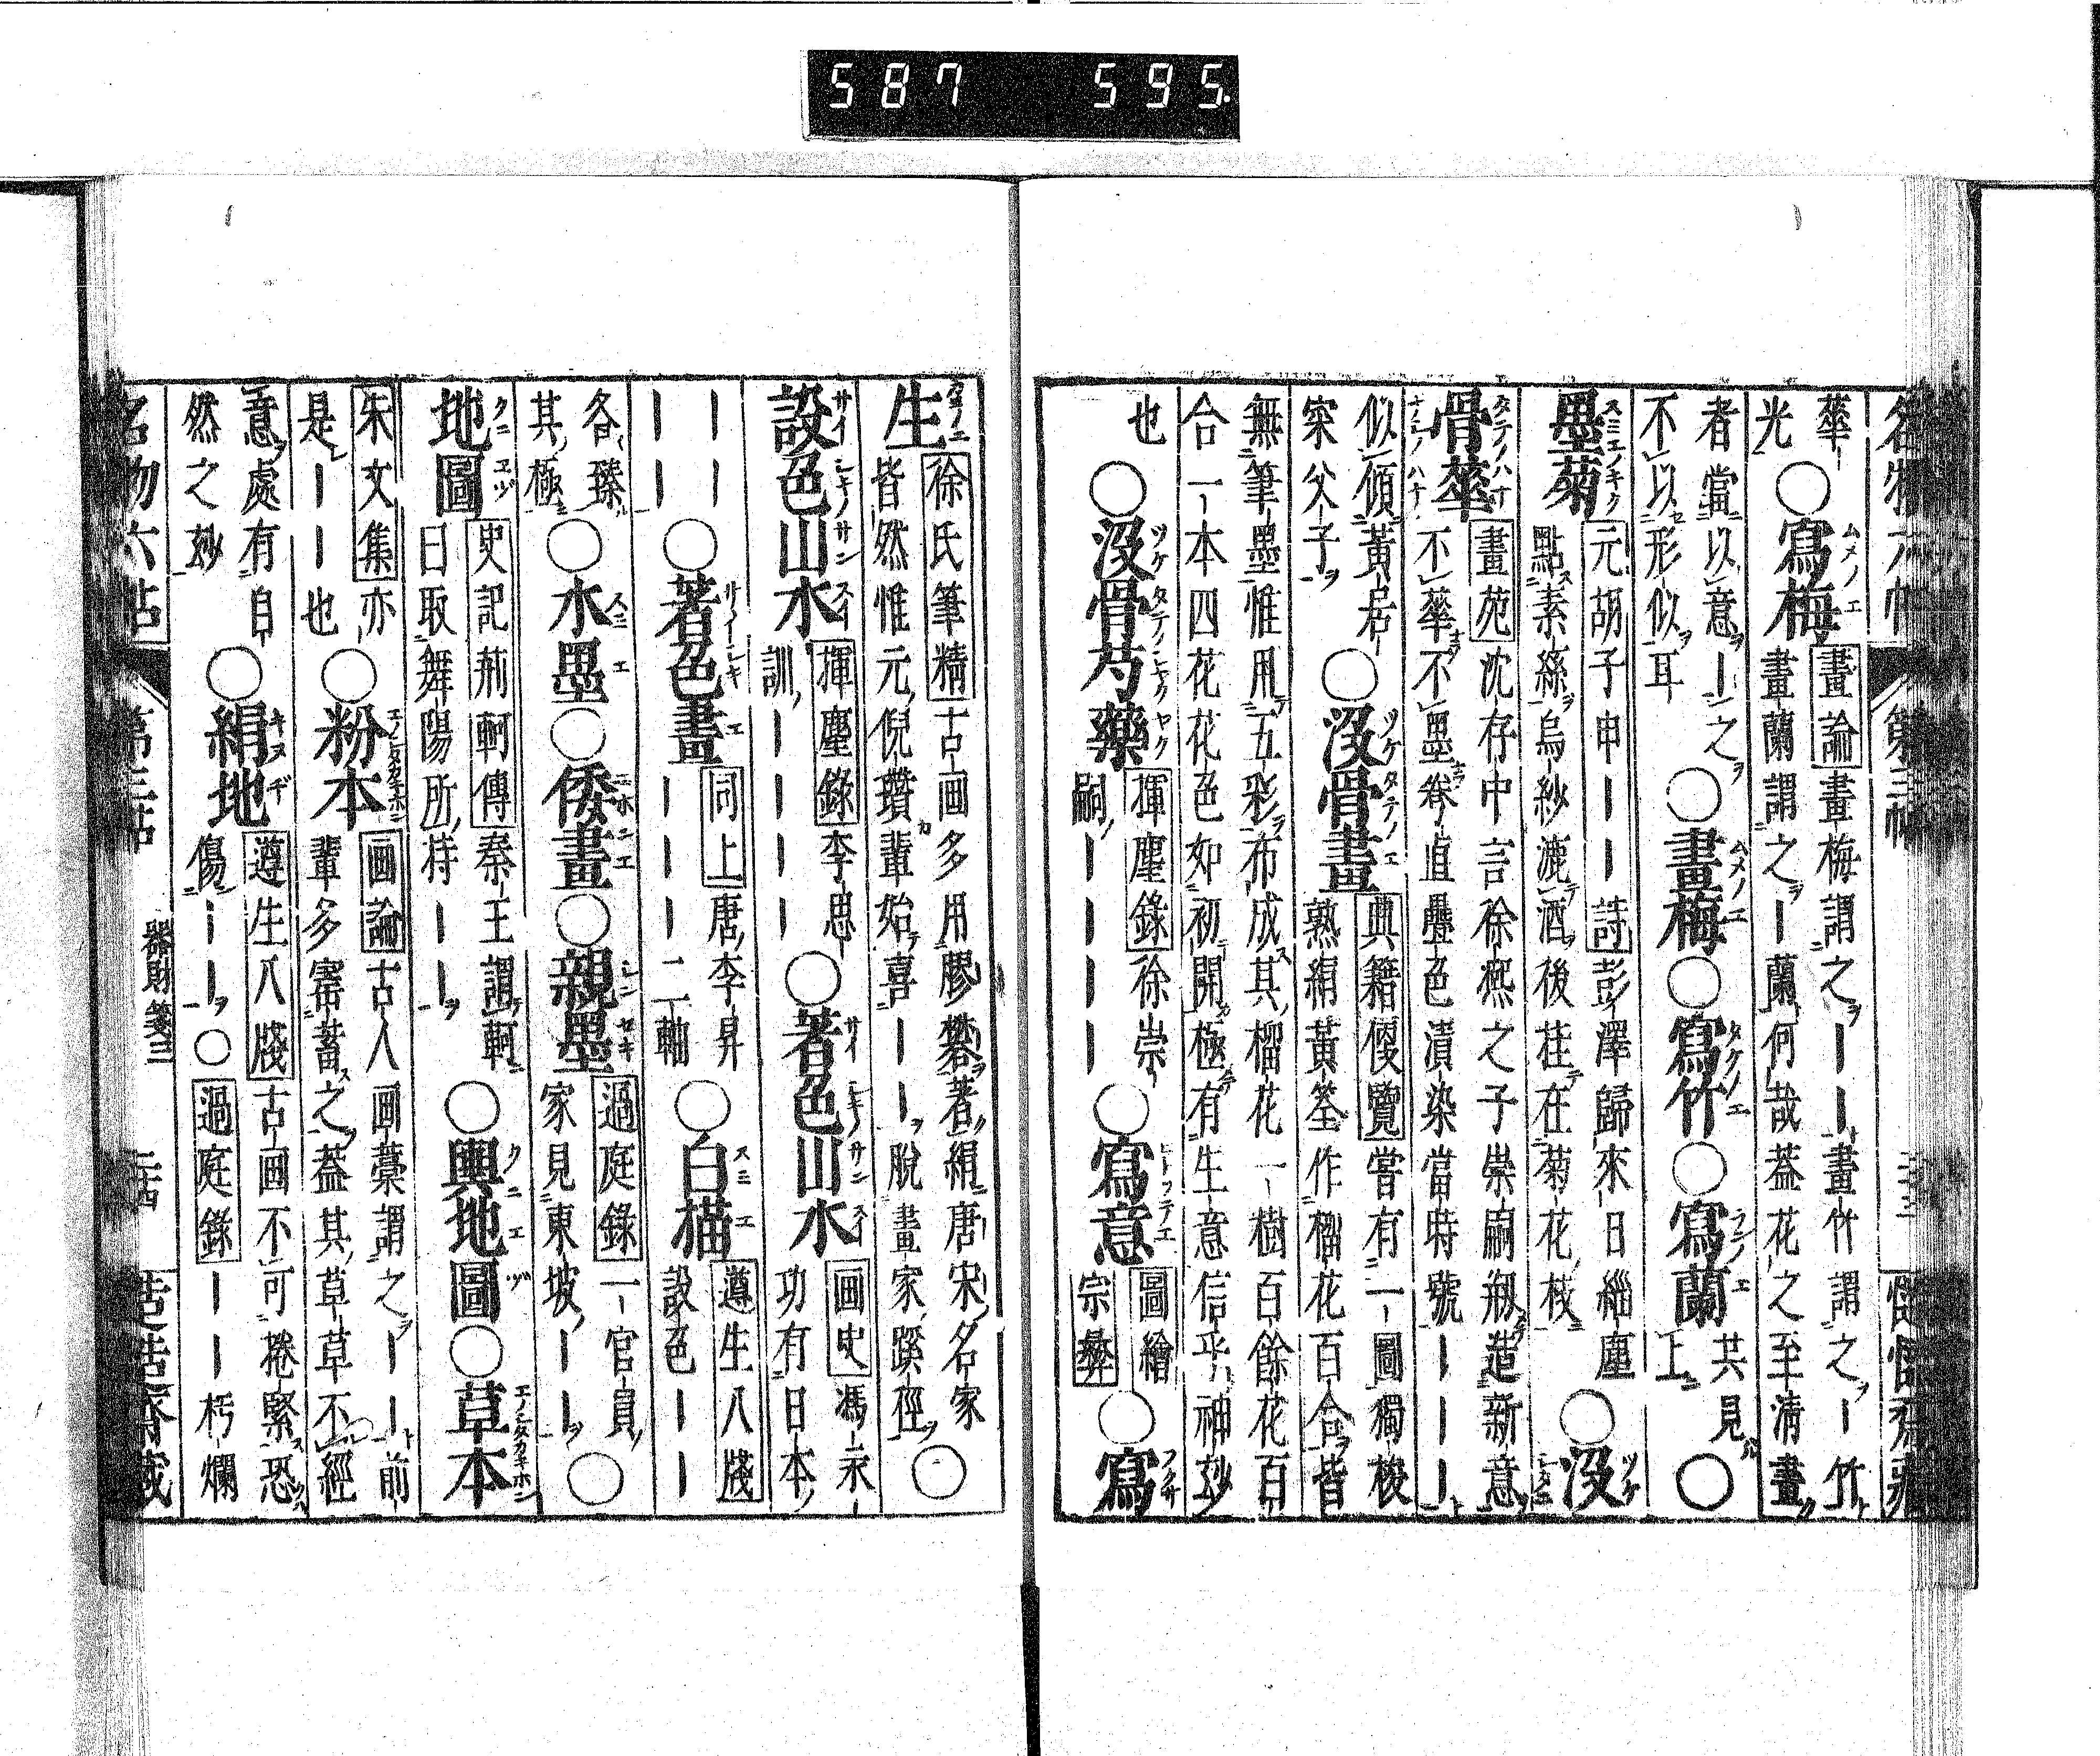 587 595
名物六帖 第三帖
華
光
○寫梅
畫論畫梅謂之ーー畫竹謂之ー竹
畫蘭謂之ー蘭何哉葢花之至清畫
者當以意ー之
不以形似耳
○畫梅○寫竹○寫蘭
共見
上
○
墨菊
元胡子申ーー詩彭澤歸來日緇塵
點素絲烏紗漉酒後挂在菊花枝
○沒
骨華
畫苑沈存中言徐熙之子崇嗣刱造新意
不華不墨卷直疊色漬染當時號ーーー
似傾黃居
寀父子
○沒骨畫
典籍便覽嘗有一圖獨梭
熟絹黃筌作榴花百合皆
無筆墨惟用五彩布成其榴花一樹百餘花百
合一本四花花色如初開極有生意信乎神玅
也
○沒骨芍藥
揮麈錄徐崇
嗣ーーーー
○寫意
圖繪
宗彝
○寫
生
徐氏筆精古画多用膠礬著絹唐宋名家
皆然惟元倪瓚輩始喜ーー脫畫家蹊徑
○
設色山水
揮麈錄李思
訓ーーーー
○著色山水
画史馮永
功有日本
ーーー
ーー
○著色畫
同上唐李昇
ーーー二軸
○白描
遵生八牋
設色ーー
各臻
其極
○水墨○倭畫○親墨
過庭錄一官員
家見東坡ーー
○
地圖
史記荊軻傳秦王謂軻
曰取舞陽所持ーー
○輿地圖○草本
朱文集亦
是ーーー也
○粉本
画論古人画藁謂之ーー前
輩多寳蓄之葢其草草不經
意處有自
然之玅
○絹地
遵生八牋古画不可捲緊恐
傷ーー○過庭錄ーー朽爛
名物六帖 第三帖 器財箋三